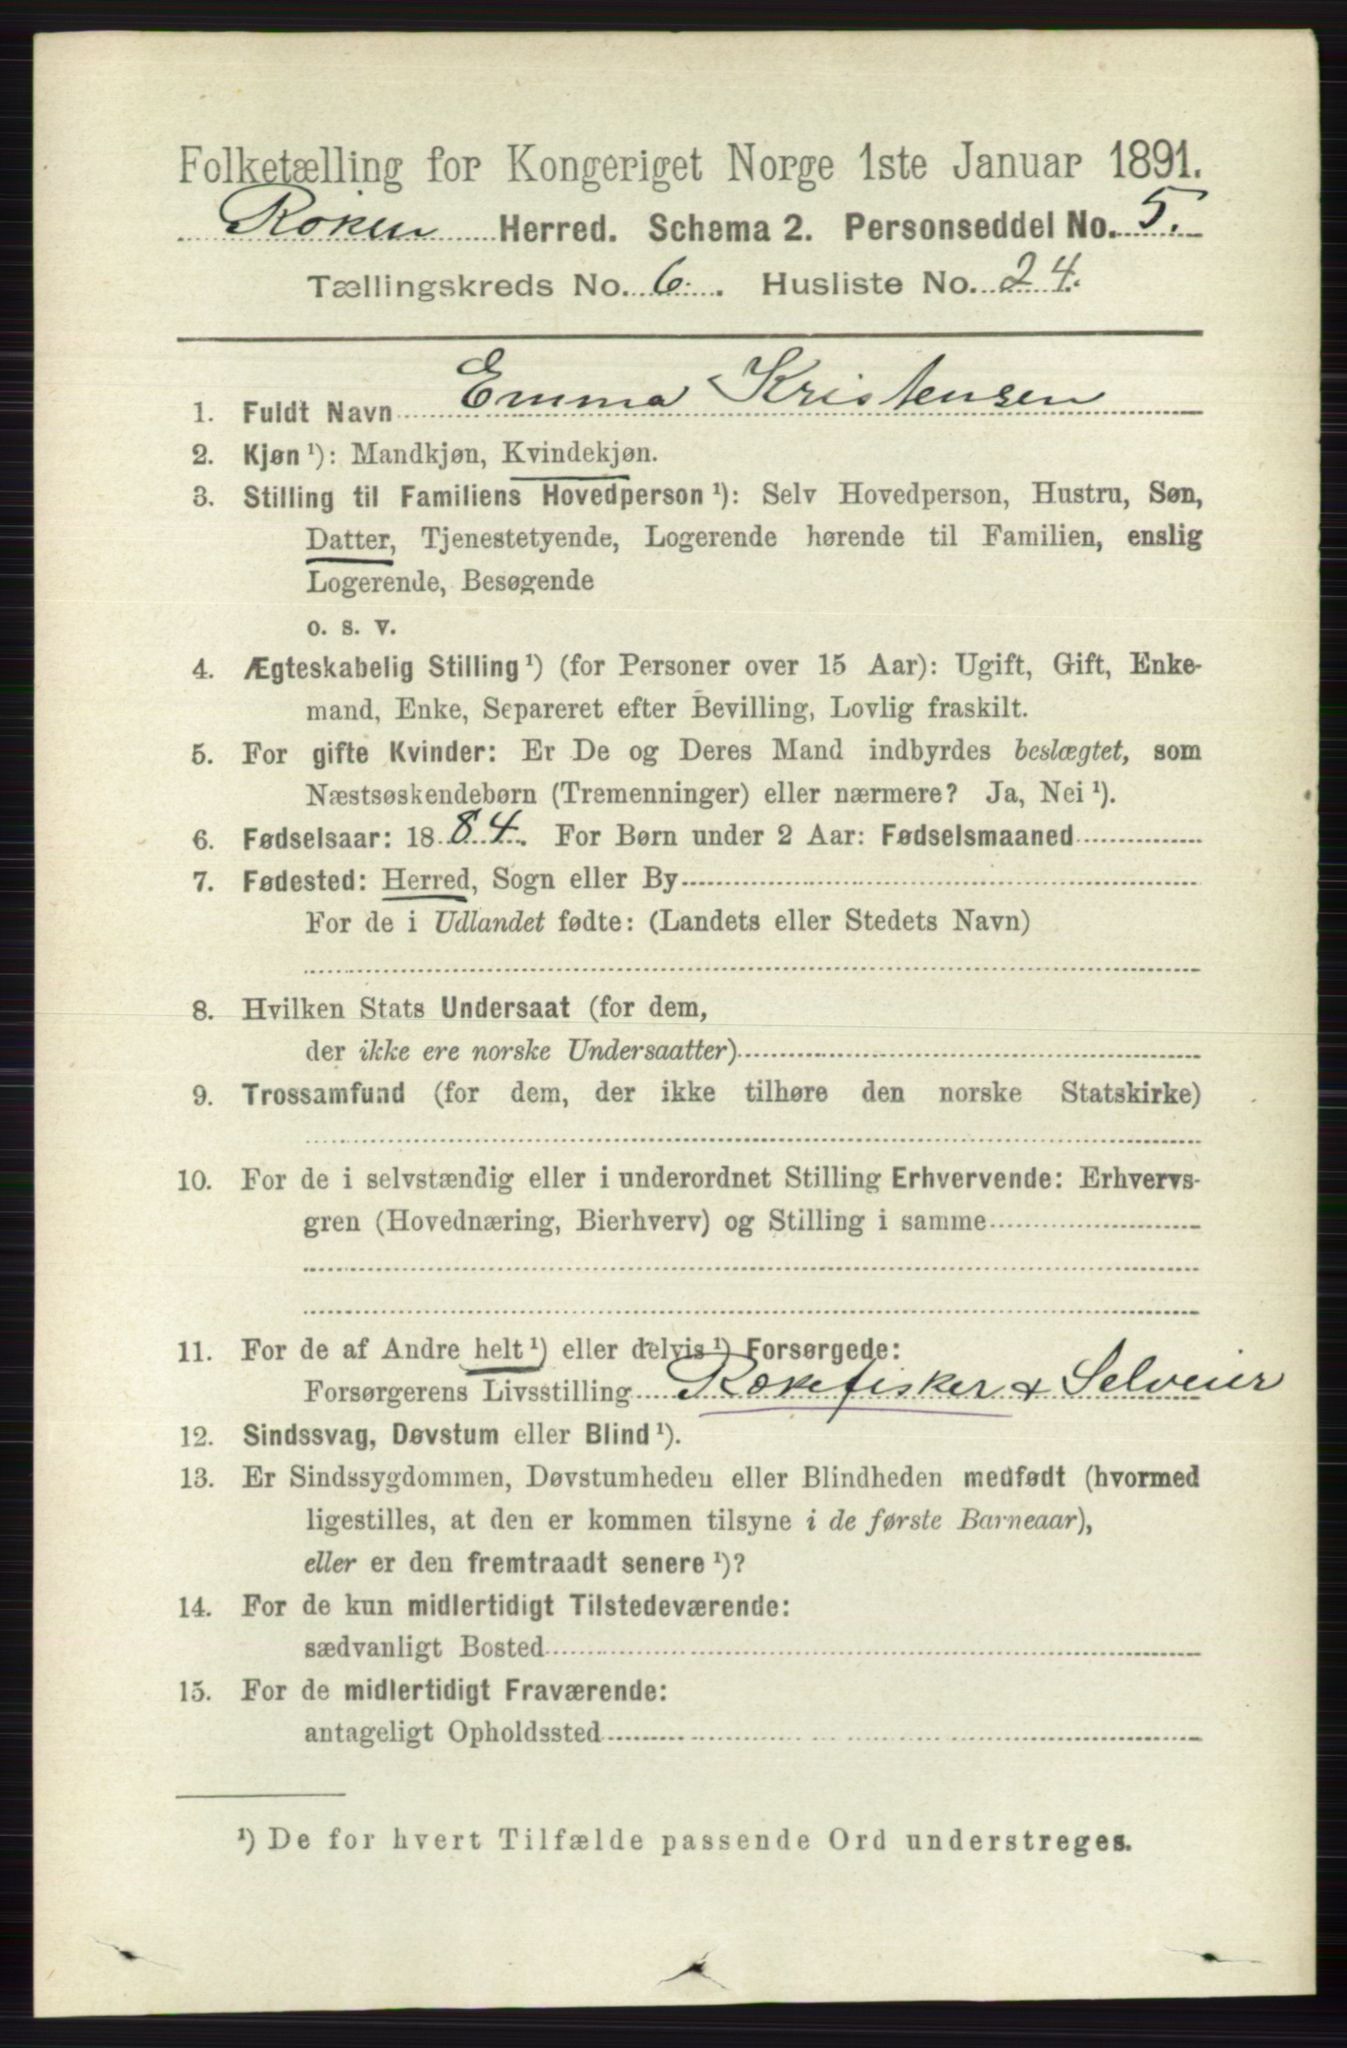 Folketælling for Kongeriget Norge 1ste Januar 1891.
Röken Herred. Schema 2. Personseddel No. 5.
Tællingskreds No. 6. Husliste No. 24.
1. Fuldt Navn Emma Kristensen
2. Kjøn ¹): Mandkjøn, Kvindekjøn.
3. Stilling til Familiens Hovedperson ¹): Selv Hovedperson, Hustru, Søn,
Datter, Tjenestetyende, Logerende hørende til Familien, enslig
Logerende, Besøgende
o. s. v.
4. Ægteskabelig Stilling ¹) (for Personer over 15 Aar): Ugift, Gift, Enke-
mand, Enke, Separeret efter Bevilling, Lovlig fraskilt.
5. For gifte Kvinder: Er De og Deres Mand indbyrdes beslægtet, som
Næstsøskendebørn (Tremenninger) eller nærmere? Ja, Nei ¹).
6. Fødselsaar: 1884. For Børn under 2 Aar: Fødselsmaaned
7. Fødested: Herred, Sogn eller By
For de i Udlandet fødte: (Landets eller Stedets Navn)
8. Hvilken Stats Undersaat (for dem,
der ikke ere norske Undersaatter)
9. Trossamfund (for dem, der ikke tilhøre den norske Statskirke)
10. For de i selvstændig eller i underordnet Stilling Erhvervende: Erhvervs-
gren (Hovednæring, Bierhverv) og Stilling i samme
11. For de af Andre helt ¹) eller delvis ¹) Forsørgede:
Forsørgerens Livsstilling Rokefisker & Selveier
12. Sindssvag, Døvstum eller Blind ¹).
13. Er Sindssygdommen, Døvstumheden eller Blindheden medfødt (hvormed
ligestilles, at den er kommen tilsyne i de første Barneaar),
eller er den fremtraadt senere ¹)?
14. For de kun midlertidigt Tilstedeværende:
sædvanligt Bosted
15. For de midlertidigt Fraværende:
antageligt Opholdssted
¹) De for hvert Tilfælde passende Ord understreges.